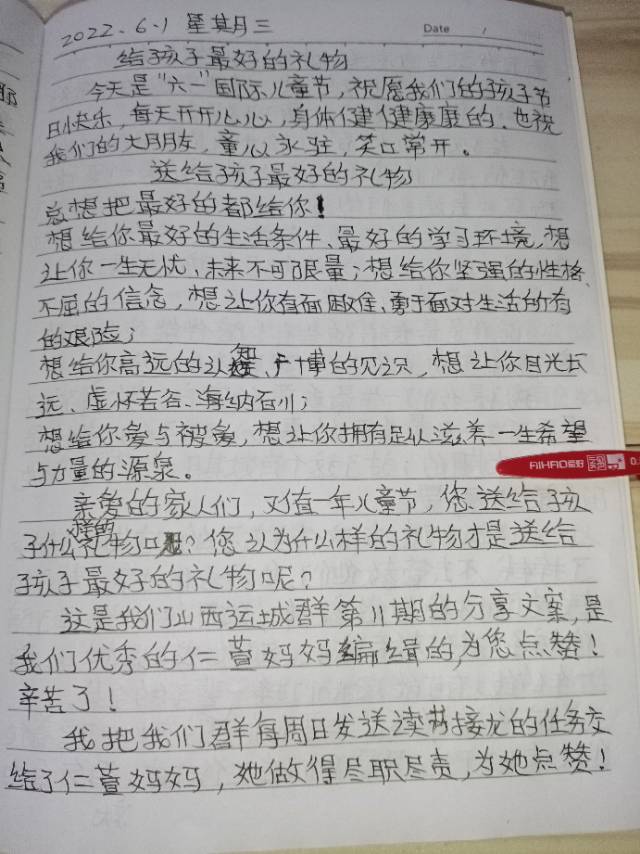 2022.6.1 星期三
Date /
给孩子最好的礼物
今天是“六一”国际儿童节，祝愿我们的孩子节
日快乐，每天开开心心，身体健健康康的。也祝
我们的大朋友，童心永驻，笑口常开。
送给孩子最好的礼物
总想把最好的都给你！
想给你最好的生活条件、最好的学习环境，想
让你一生无忧、未来不可限量；想给你坚强的性格、
不屈的信念，想让你直面困难、勇于面对生活所有
的艰险；
想给你高远的认知、广博的见识，想让你目光长
远、虚怀若谷、海纳百川；
想给你爱与被爱，想让你拥有足以滋养一生希望
与力量的源泉。
亲爱的家人们，又值一年儿童节，您送给孩
子什么样的礼物呢？您认为什么样的礼物才是送给
孩子最好的礼物呢？
这是我们山西运城群第11期的分享文案，是
我们优秀的仁萱妈妈编缉的，为您点赞！
辛苦了！
我把我们群每周日发送读书接龙的任务交
给了仁萱妈妈，她做得尽职尽责，为她点赞！
AIHAO爱好